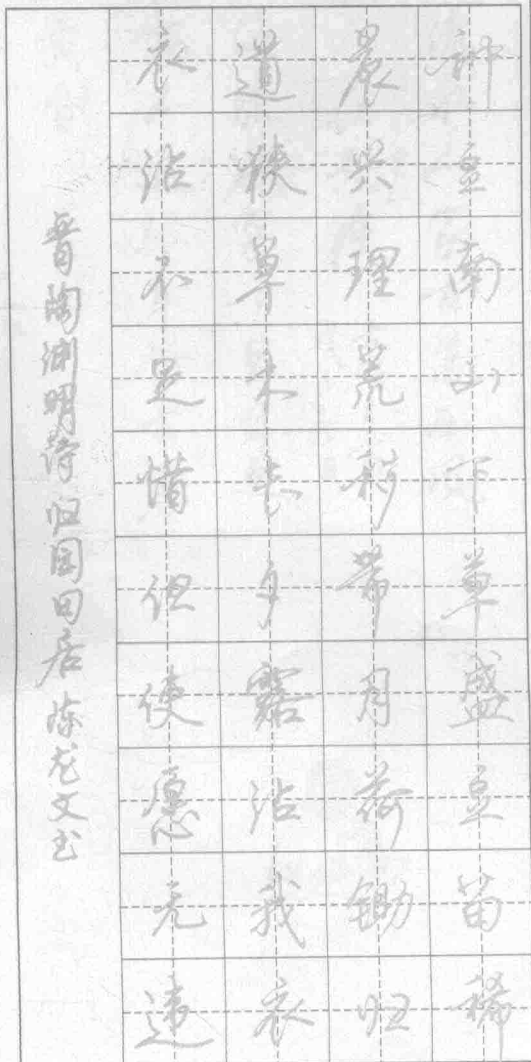 种豆南山下草盛豆苗稀
晨兴理荒秽带月荷锄归
道狭草木长夕露沾我衣
衣沾不足惜但使愿无违
晋陶渊明诗归园田居 陈龙文书